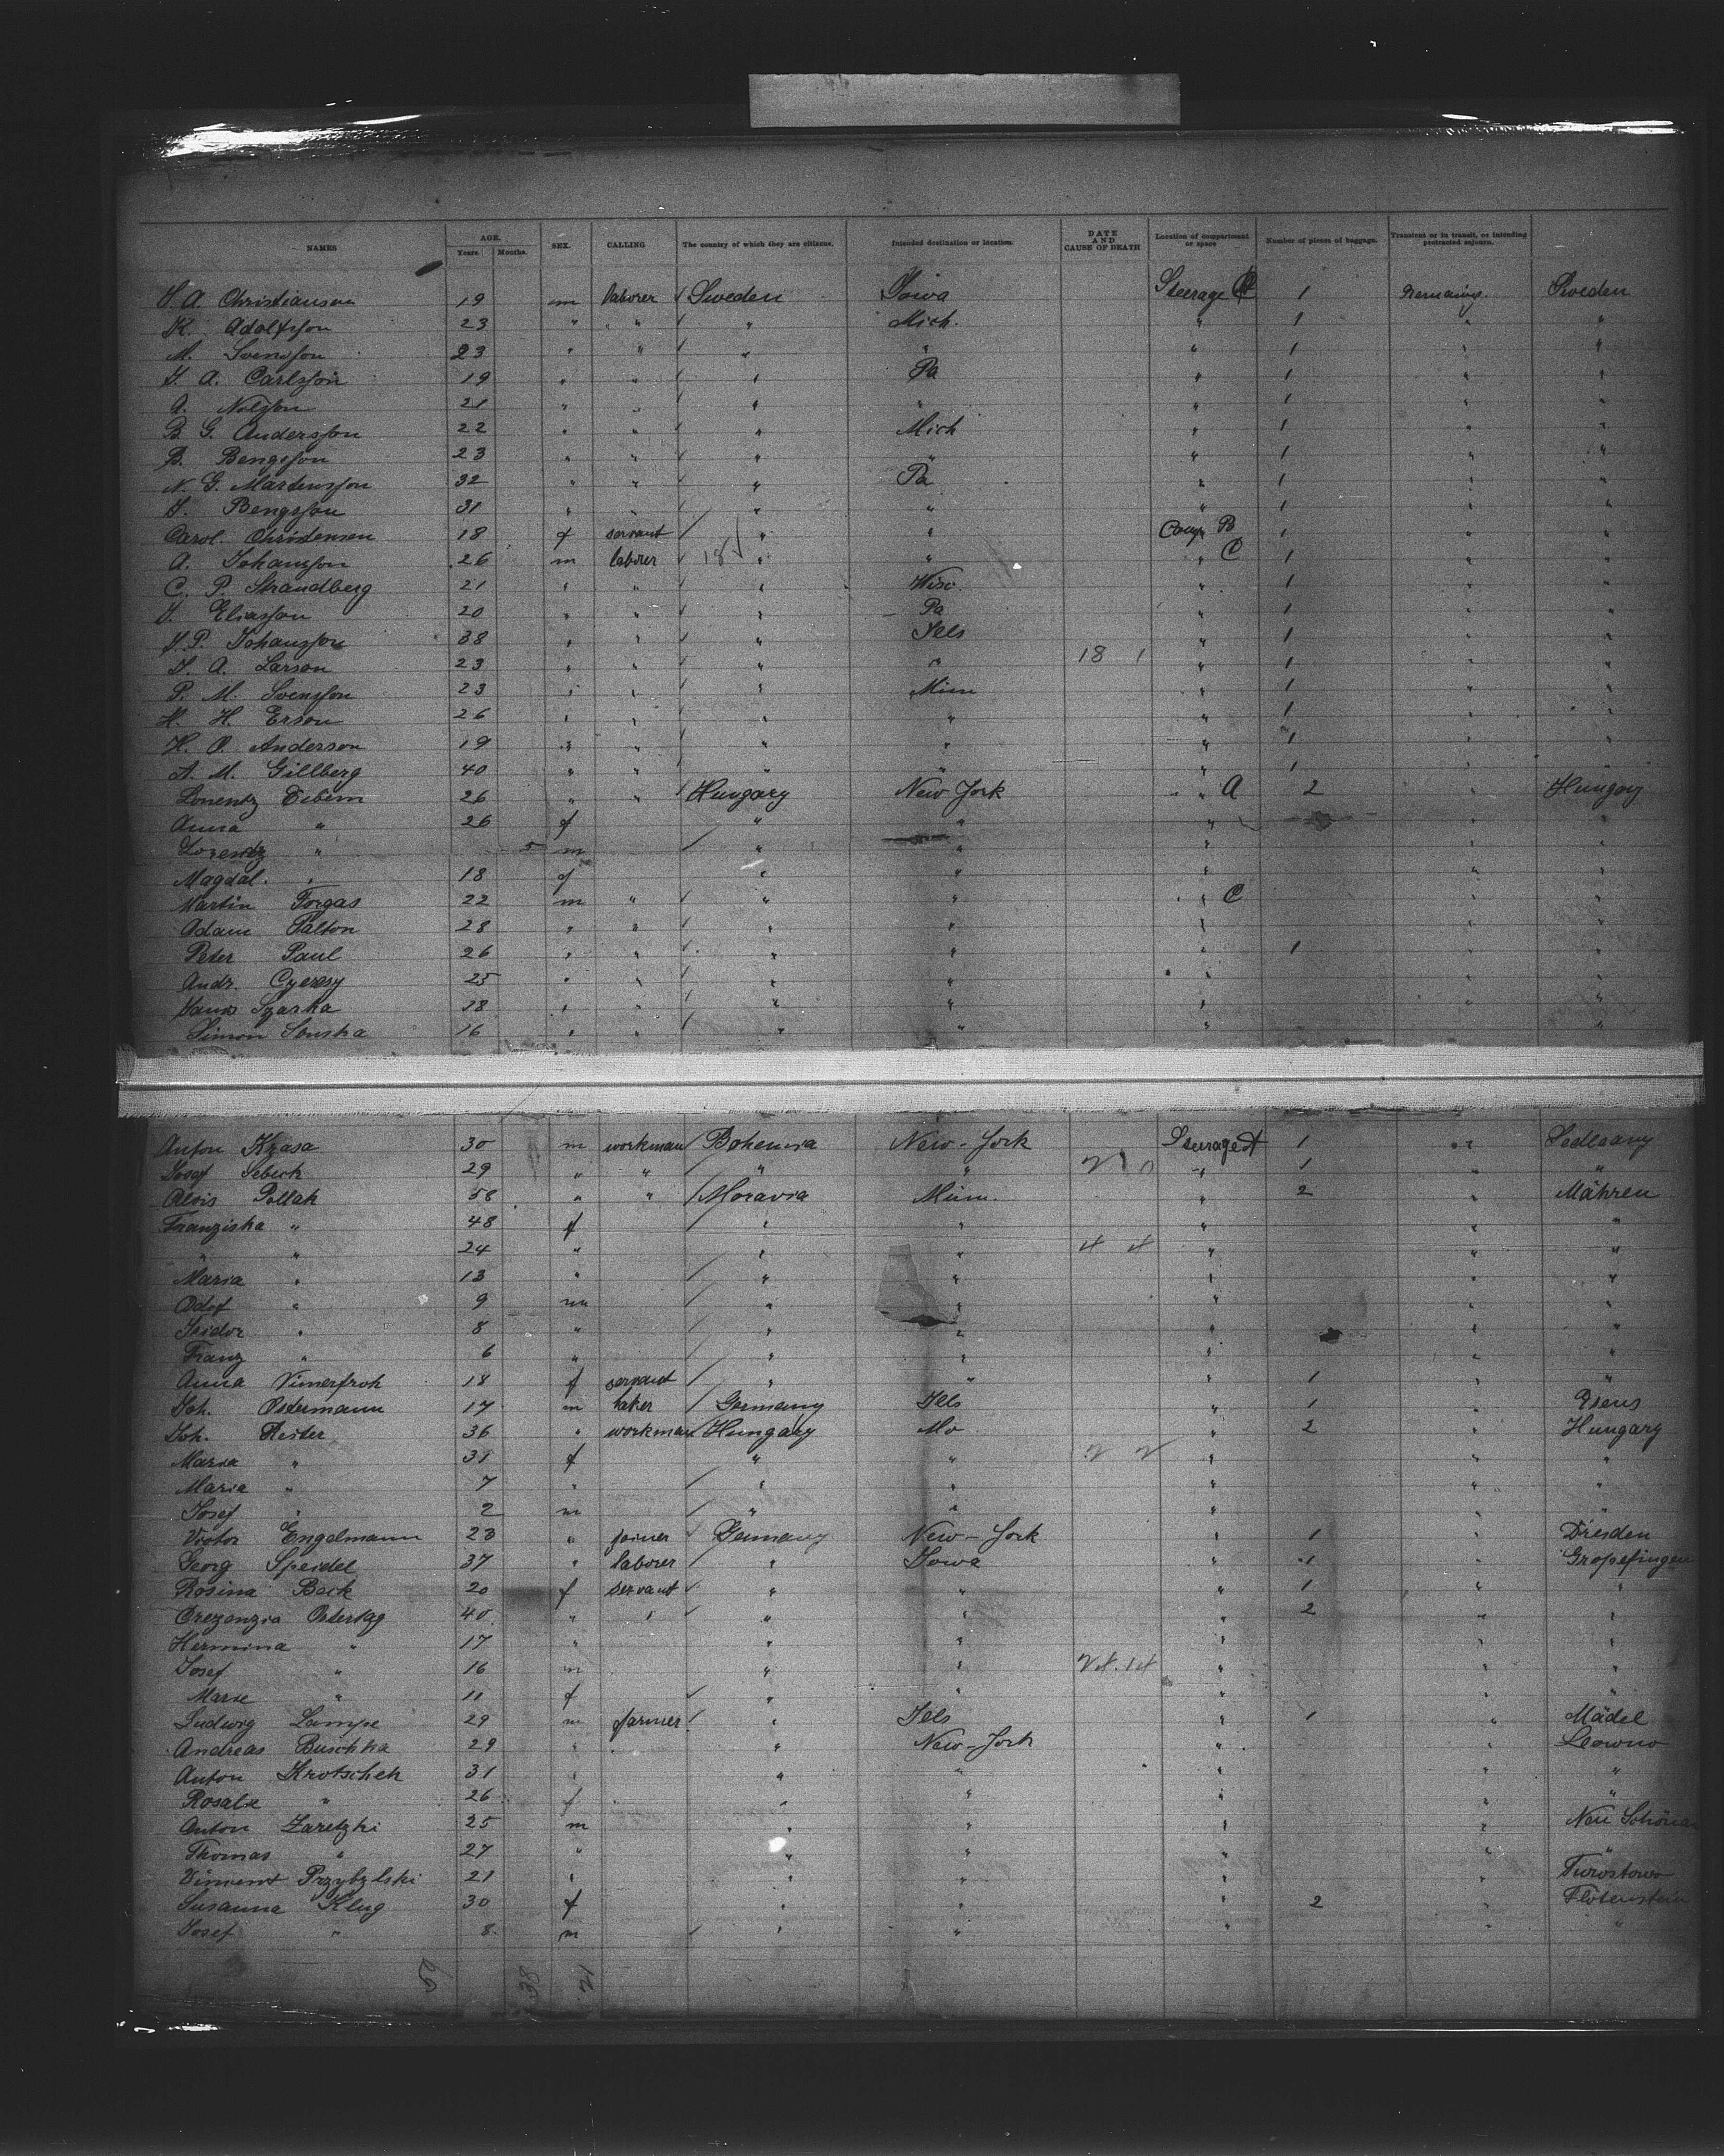 NAMES AGE. Years. Months. SEX. CALLING The country of which they are citizens. Intended destination or location. DATE AND CAUSE OF DEATH Location of compartment or space Number of pieces of baggage. Transient or in transit, or intending protracted sojourn.
A. Christiansen 19 m laborer Sweden Iowa Steerage 1 Sweden
K. Adolfsson 23 " " " Mich. " 1 " "
M. Svensson 23 " " " " " 1 " "
A. Carlsson 19 " " " Pa " 1 " "
A. Nelsson 21 " " " " " 1 " "
B. G. Andersson 22 " " " Mich " 1 " "
B. Bengsson 23 " " " " " 1 " "
N. G. Martensson 32 " " " Pa " 1 " "
Bengsson 31 " " " " " 1 " "
Carol. Christensen 18 f servant " " Comp B 1 " "
A. Johansson 26 m laborer 18 " " " C 1 " "
C. P. Strandberg 21 " " " Wisc. " 1 " "
Eliasson 20 " " " Pa " 1 " "
P. Johansson 38 " " " Ills " 1 " "
A. Larson 23 " " " " 18 1 " 1 " "
P. M. Svensson 23 " " " Minn " 1 " "
H. Erson 26 " " " " " 1 " "
H. O. Anderson 19 " " " " " 1 " "
A. M. Gillberg 40 " " " " " 1 " "
26 " " Hungary New York " A 2 " Hungary
Anna " 26 f " " " " "
Lorentz " 5 m " " " " "
Magdal. " 18 f " " " " "
Martin Forgas 22 m " " " " C " "
Adam Palton 28 " " " " " " "
Peter Paul 26 " " " " " 1 " "
Andr. 25 " " " " " " "
18 " " " " " " "
Simon 16 " " " " " "
Anton 30 m workman Bohemia New-York Steerage A 1 " Sedlaany
Josef 29 " " " " 2 0 " 1 " "
Alois Pollak 58 " " Moravia Minn. " 2 " Mähren
Franziska " 48 f " " " " "
" " 24 " " " 4 4 " " "
Maria " 13 " " " " " "
" 9 m " " " " "
Isidor " 8 " " " " " "
Franz " 6 " " " " " "
Anna 18 f servant " " " 1 " "
Joh. Ostermann 17 m Germany Ills " 1 " Esens
Joh. 36 " workman Hungary Mo " 2 " Hungary
Maria " 31 f " " 2 2 " " "
Maria " 7 " " " " " "
Josef " 2 m " " " " "
Victor Engelmann 23 " joiner Germany New-York " 1 " Dresden
Georg Speidel 37 " laborer " Iowa " 1 "
Rosina Beck 20 f servant " " " 1 " "
Crezanzia Ostertag 40 " " " " " 2 " "
Hermina " 17 " " " " " "
Josef " 16 m " " 24.14 " " "
Marie " 11 f " " " " "
Ludwig Lampe 29 m farmer " Ills " 1 " Mädel
Andreas Buschka 29 " " " New-York " "
Anton Krotschek 31 " " " " " "
Rosalie " 26 f " " " " " "
Anton Zaretzki 25 m " " " " Neu
Thomas " 27 " " " " " "
Vincent Przybylski 21 " " " " "
Susanna Klug 30 f " " " 2 " Flötenstein
Josef " 8 m " " " " "
59 38 21